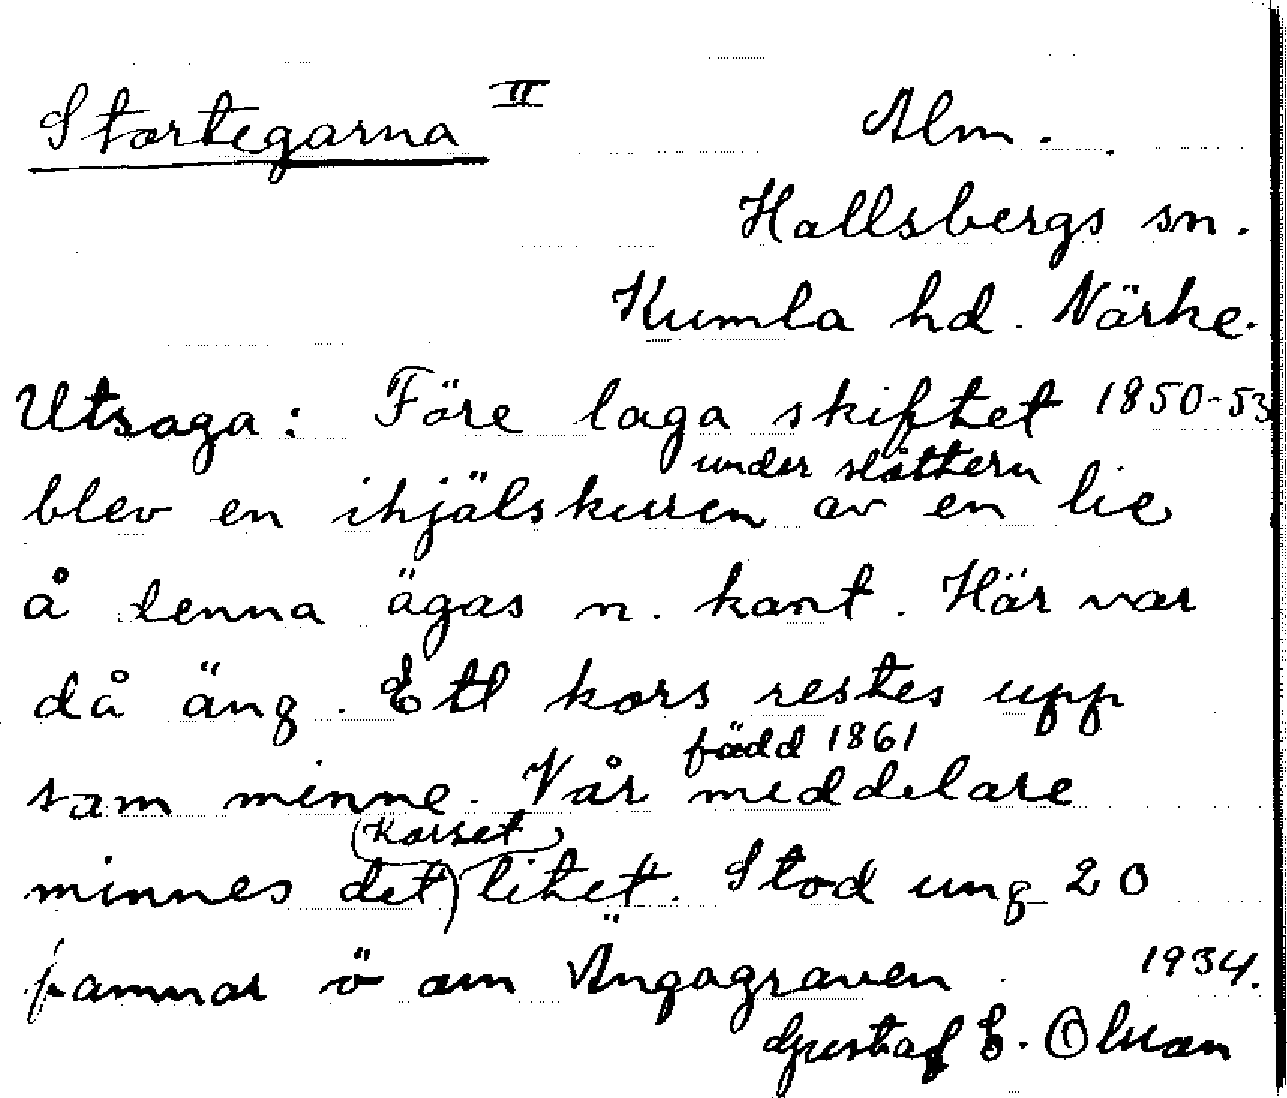 Stortegarna II
Alm.
Hallsbergs sn.
Kumla hd. Närke.
Utsaga: Före laga skiftet 1850-53
under slåttern
blev en ihjälskuren av en lie
å denna ägas n. kant. Här var
då äng. Ett kors restes upp
född 1861
som minne. Vår meddelare
korset
minnes det) litet. Stod ung 20
famnar ö om Ängagraven. 1934.
Gustaf E. Olsson